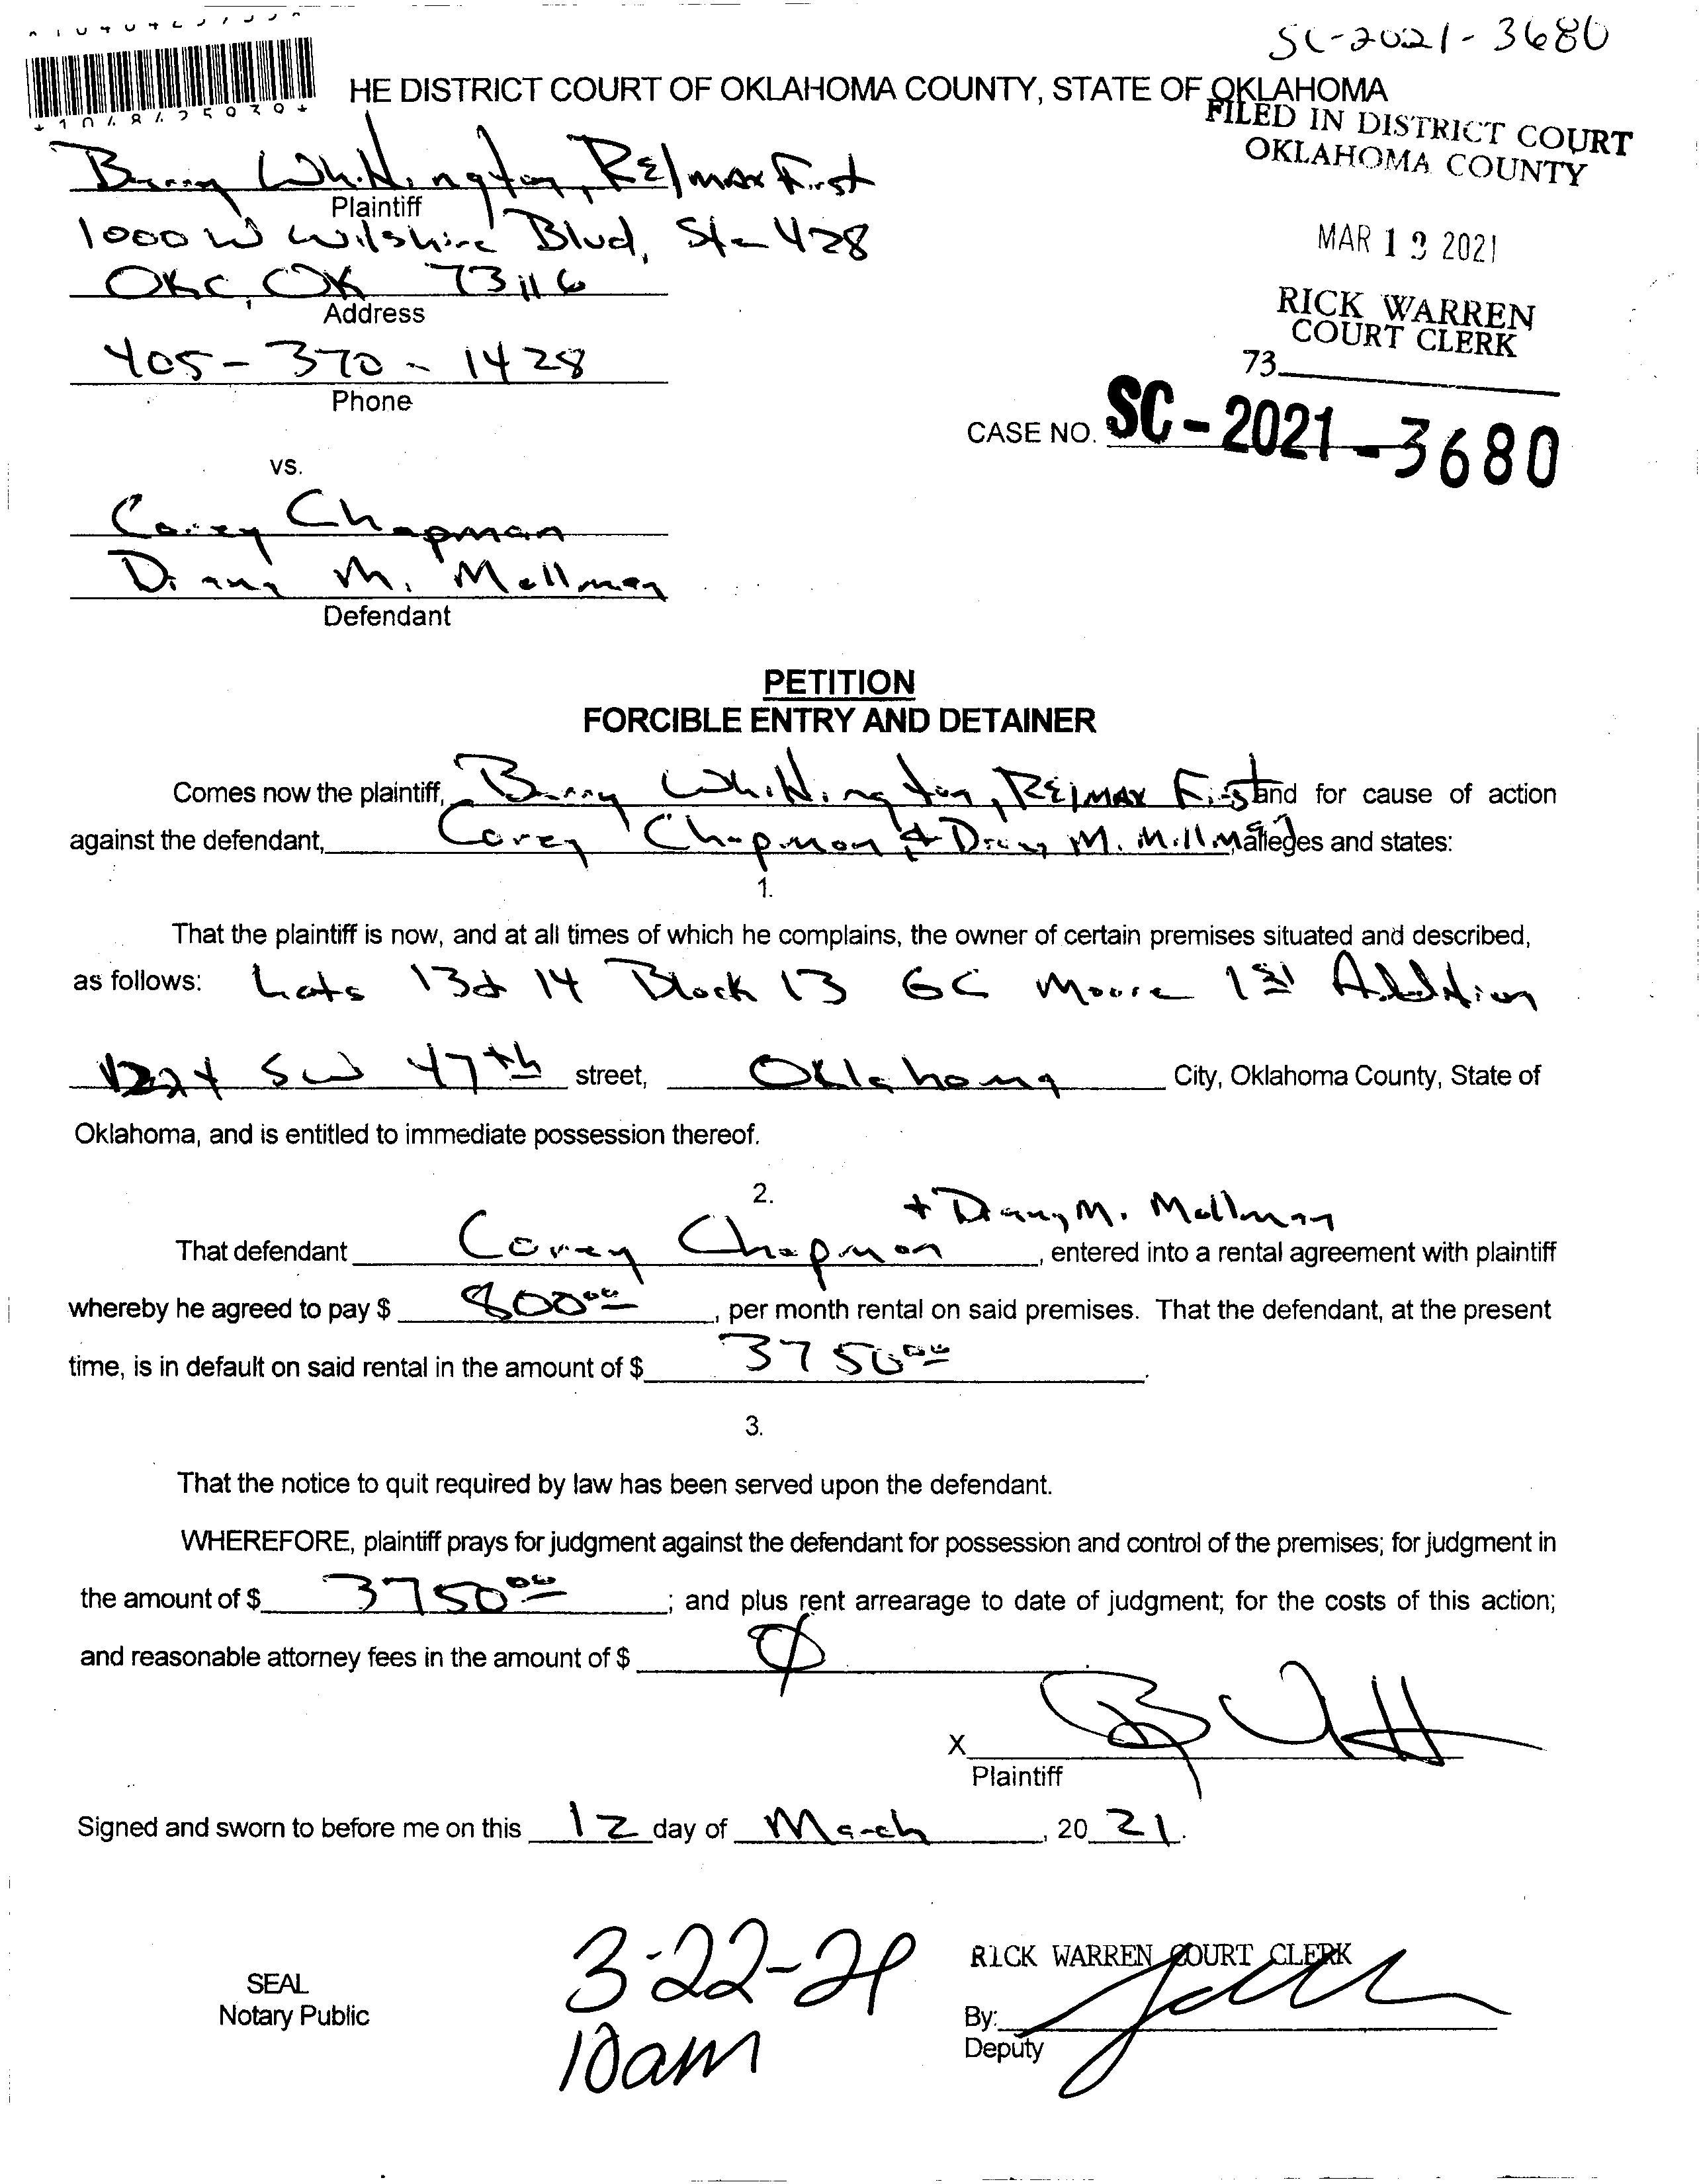 SC-2021-3680
HE DISTRICT COURT OF OKLAHOMA COUNTY, STATE OF OKLAHOMA
FILED IN DISTRICT COURT
OKLAHOMA COUNTY
MAR 2021
RICK WARREN
COURT CLERK
73
Barry Whittington, RE/MAX First
Plaintiff
1000 W Wilshire Blvd, Ste 428
OKC, OK 73116
Address
405-370-1428
Phone
CASE NO. SC-2021-3680
vs.
Corey Chapman
M. Mellman
Defendant
PETITION
FORCIBLE ENTRY AND DETAINER
Comes now the plaintiff, Barry Whittington, RE/MAX First and for cause of action
against the defendant, Corey Chapman + M. alleges and states:
1.
That the plaintiff is now, and at all times of which he complains, the owner of certain premises situated and described,
as follows: Lots 13 & 14 Block 13 GC Moore 1st Addition
SW 47th street, Oklahoma City, Oklahoma County, State of
Oklahoma, and is entitled to immediate possession thereof.
2.
+ M. Mellman
That defendant Corey Chapman, entered into a rental agreement with plaintiff
whereby he agreed to pay $ 800.00, per month rental on said premises. That the defendant, at the present
time, is in default on said rental in the amount of $ 3750.00.
3.
That the notice to quit required by law has been served upon the defendant.
WHEREFORE, plaintiff prays for judgment against the defendant for possession and control of the premises; for judgment in
the amount of $ 3750.00; and plus rent arrearage to date of judgment; for the costs of this action;
and reasonable attorney fees in the amount of $ Ø
X
Plaintiff
Signed and sworn to before me on this 12 day of March, 20 21.
3-22-21
10am
RICK WARREN COURT CLERK
SEAL
Notary Public
By:
Deputy